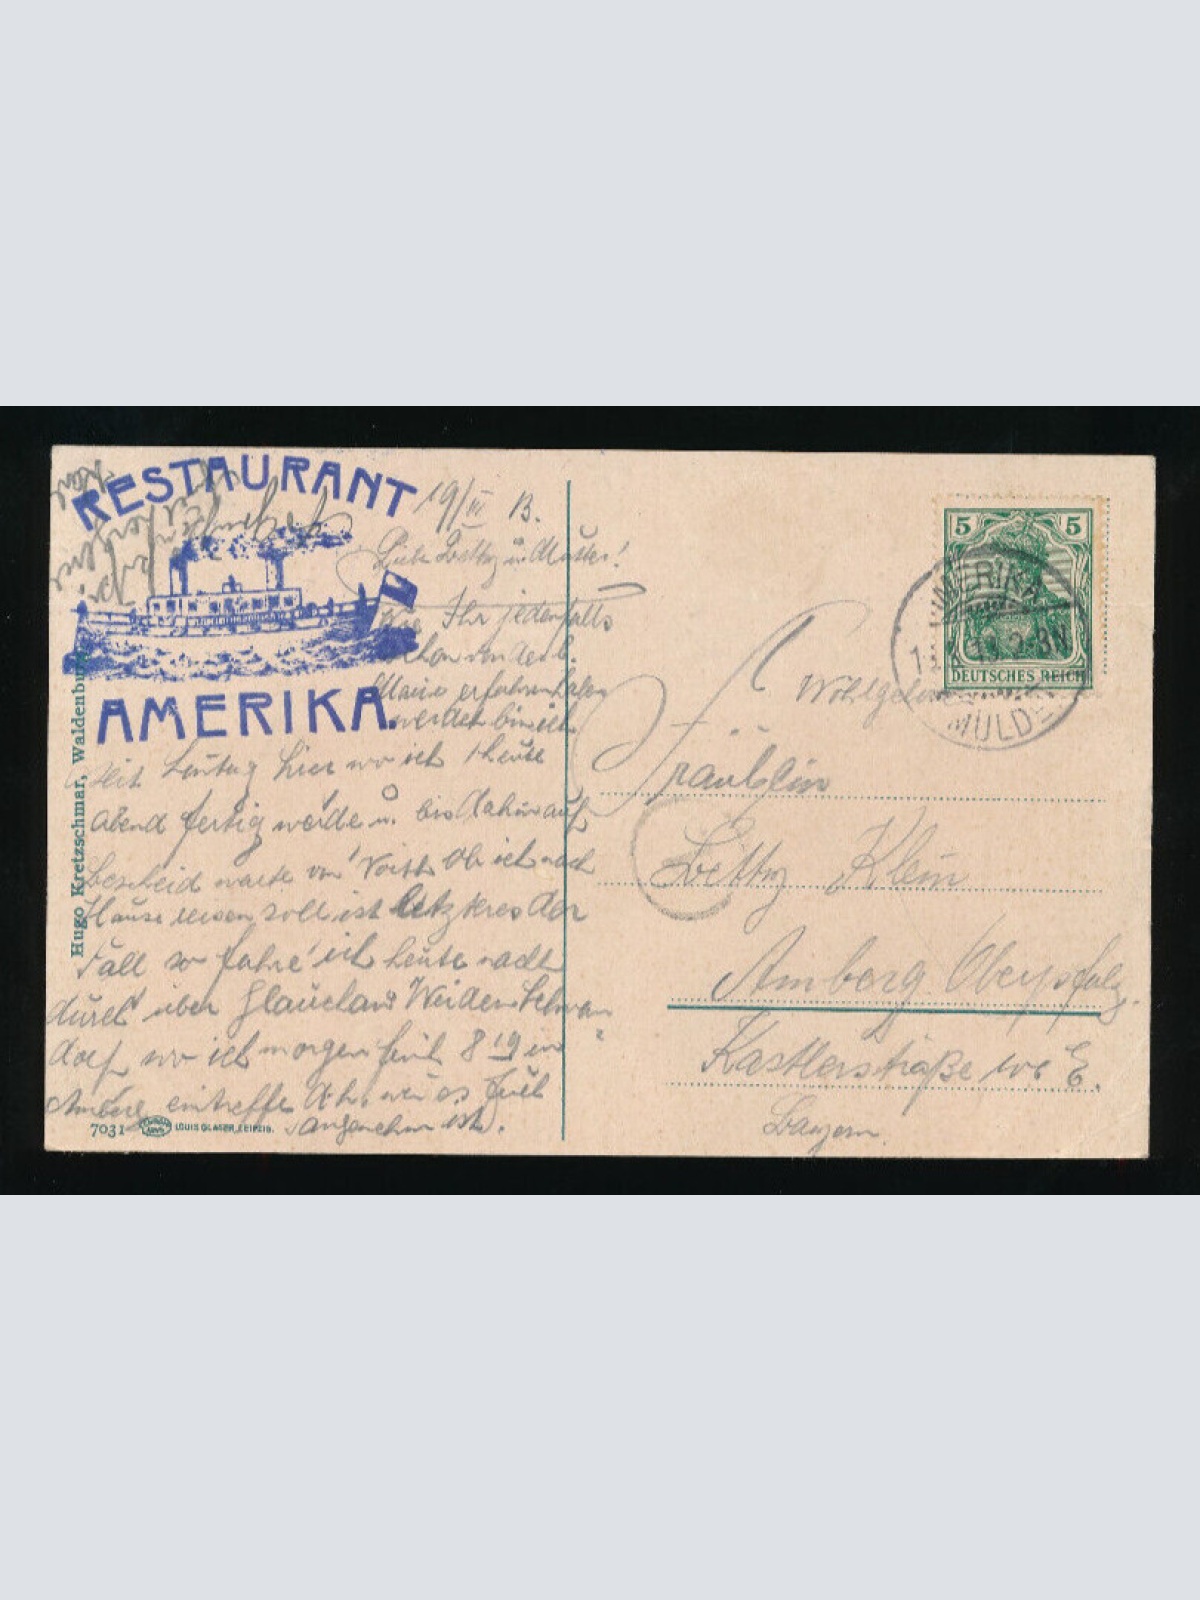 RESTAURANT
AMERIKA.
19/III 13.
Liebe Betty u. Mutter!
Wie Ihr jedenfalls
schon von der l.
Marie erfahren haben
werdet bin ich
seit hier wo ich heute
Abend fertig werde u. bis dahin auf
Bescheid warte von Voith ob ich nach
Hause reisen soll ist letzteres der
Fall so fahre ich heute nacht
durch über Glauchau Weiden Schwan-
dorf, wo ich morgen früh 8 19 in
Amberg eintreffe d.h. wenn es Euch
angenehm ist.
Hugo Kretzschmar, Waldenburg
7031 LOUIS GLASER, LEIPZIG.
5 5
DEUTSCHES REICH
AMERIKA
2-3N
MULDE
Wohlgeb.
Fräulein
Betty Klein
Amberg. Oberpfalz.
Kastlerstraße
Bayern.